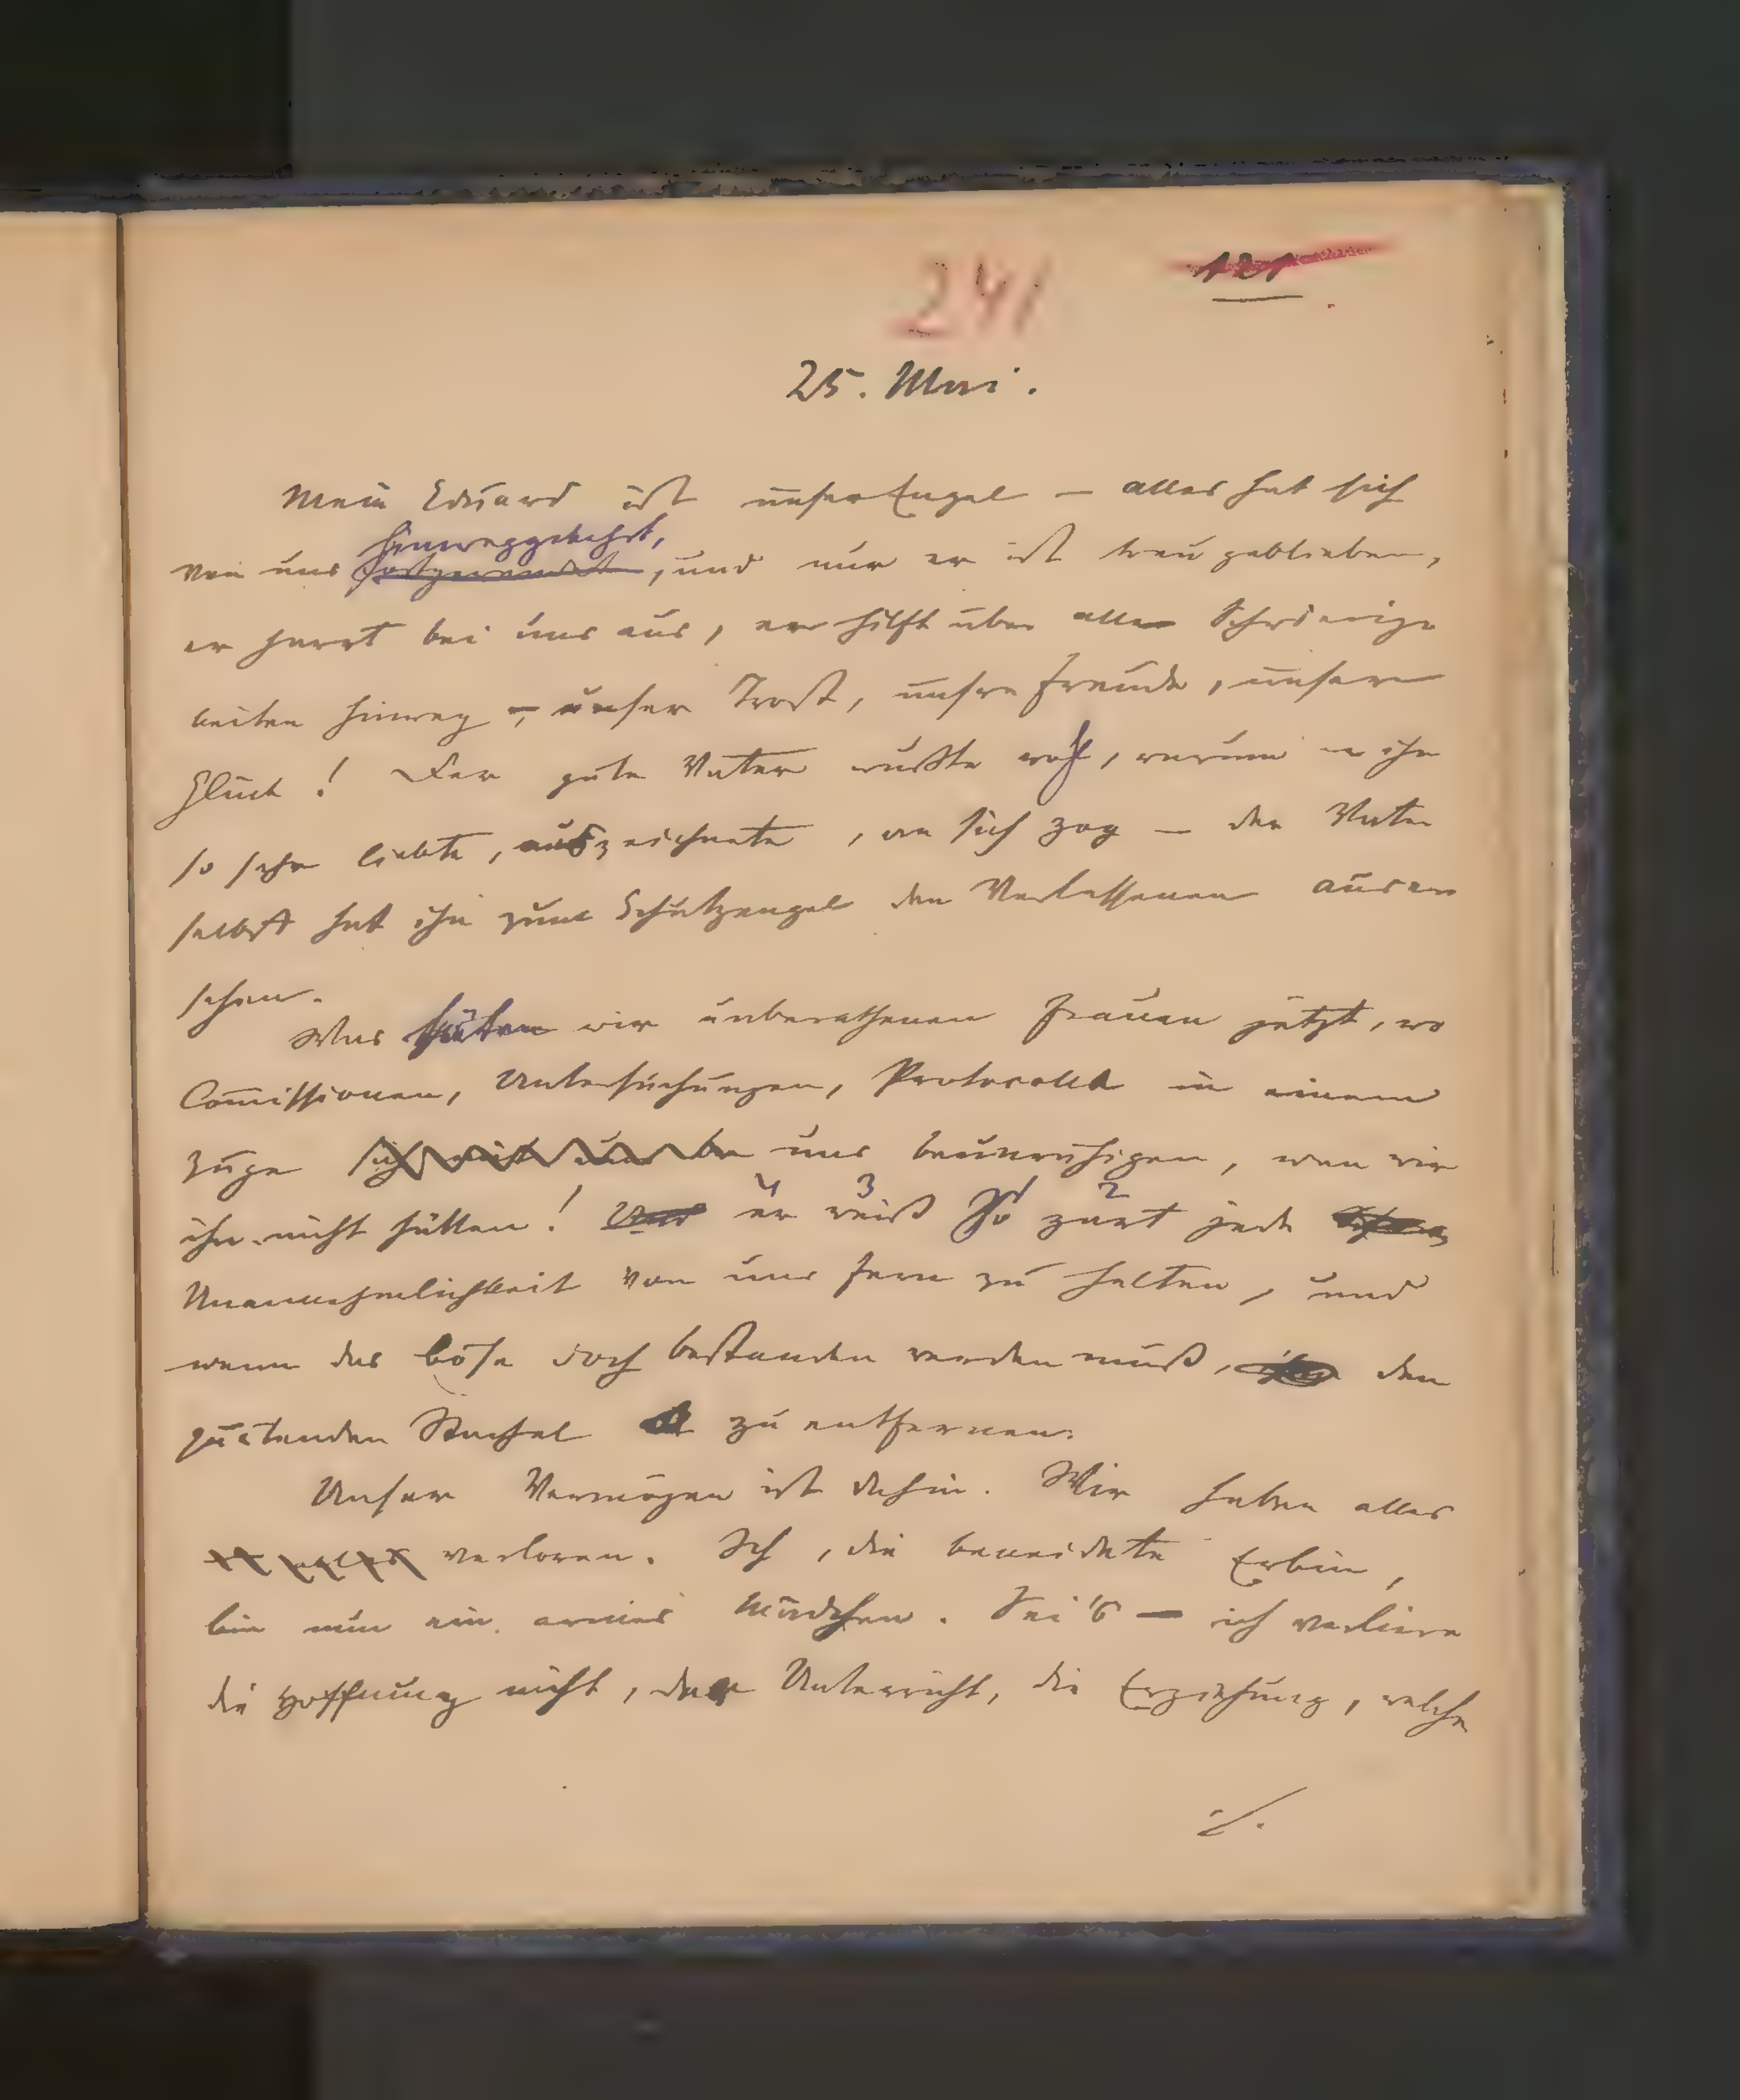 241
121
25. Mai.
Mein Eduard ist unser Engel — alles hat sich
hinweggekehrt,
von uns fortgewendet, und nur er ist treu geblieben,
er harrt bei uns aus, er hilft über alle Schwierig-
keiten hinweg —, unser Trost, unsre Freude, unser
Glück! Der gute Vater wußte wohl, warum er ihn
so sehr liebte, auszeichnete, an sich zog — der Vater
selbst hat ihn zum Schutzengel der Verlassenen auser-
sehen.
Was thäten wir unberathenen Frauen jetzt, wo
Com̅issionen, Untersuchungen, Protocolle in einem
Zuge sich nicht uns be uns beunruhigen, wen wir
ihn nicht hätten! Und er weiß so zart jede
4 3 1 2
Unannehmlichkeit von uns fern zu halten, und
wenn das böse doch bestanden werden muß, den
quälenden Stachel zu entfernen.
Unser Vermögen ist dahin. Wir haben alles
verloren. Ich, die beneidete Erbin,
bin nun ein armes Mädchen. Sei's — ich verliere
die Hoffnung nicht, der Unterricht, die Erziehung, welche
./.